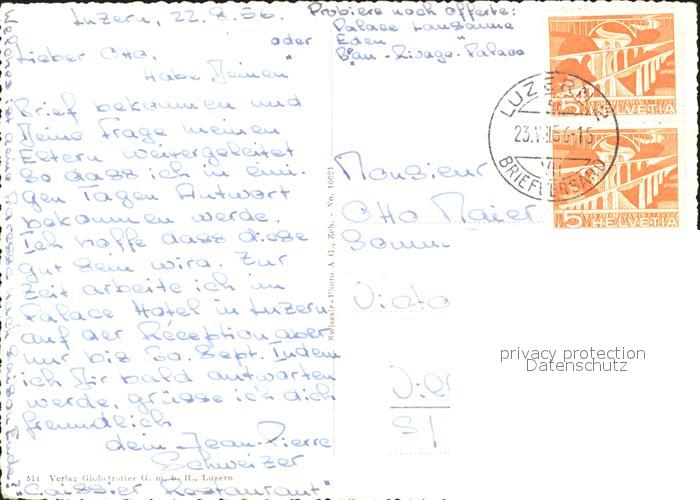 Luzern, 22.8.56.
Lieber Otto.
Habe Deinen
Brief bekommen und
Deine Frage meinen
Eltern weitergeleitet
so dass ich in eini-
gen Tagen Antwort
bekommen werde.
Ich hoffe dass diese
gut sein wird. Zur
Zeit arbeite ich im
Palace Hotel in Luzern
auf der Réception aber
nur bis 30. Sept. Indem
ich Dir bald antworten
werde, grüsse ich dich
freundlich
dein Jean-Pierre
Schweizer
"Caissier Restaurant"
Probiere noch offerte:
Palace Lausanne
oder Eden "
Beau-Rivage-Palace
Monsieur
Otto Maier
Somm
Victo
Vill
S/
LUZERN 2
23.VIII.56-15
BRIEFVERSAND
5 HELVETIA
5 HELVETIA
Swissair-Photo A.G., Zch. - No. 10621
511 Verlag Globetrotter G. m. b. H., Luzern
privacy protection
Datenschutz